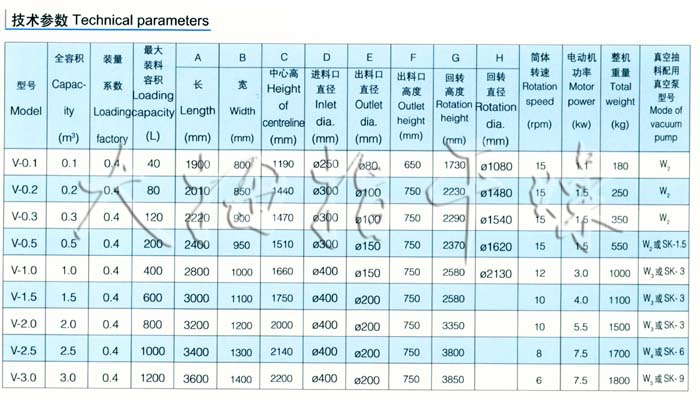 技术参数 Technical parameters
型号 Model | 全容积 Capac-ity (m³) | 装量系数 Loading factory | 最大装料容积 Loading capacity (L) | A 长 Length (mm) | B 宽 Width (mm) | C 中心高 Height of centreline (mm) | D 进料口直径 Inlet dia. (mm) | E 出料口直径 Outlet dia. (mm) | F 出料口高度 Outlet height (mm) | G 回转高度 Rotation height (mm) | H 回转直径 Rotation dia. (mm) | 筒体转速 Rotation speed (rpm) | 电动机功率 Motor power (kw) | 整机重量 Total weight (kg) | 真空抽料配用真空泵型号 Mode of vacuum pump
V-0.1 0.1 0.4 40 1900 800 1190 ø250 ø80 650 1730 ø1080 15 1.1 180 W₂
V-0.2 0.2 0.4 80 2010 850 1440 ø300 ø100 750 2230 ø1480 15 1.5 250 W₂
V-0.3 0.3 0.4 120 2220 900 1470 ø300 ø100 750 2290 ø1540 15 1.5 350 W₂
V-0.5 0.5 0.4 200 2400 950 1510 ø300 ø150 750 2370 ø1620 15 1.5 550 W₂或SK-1.5
V-1.0 1.0 0.4 400 2800 1000 1660 ø400 ø150 750 2580 ø2130 12 3.0 1000 W₃或SK-3
V-1.5 1.5 0.4 600 3000 1100 1750 ø400 ø200 750 2580 10 4.0 1100 W₃或SK-3
V-2.0 2.0 0.4 800 3200 1200 2000 ø400 ø200 750 3350 10 5.5 1500 W₃或SK-3
V-2.5 2.5 0.4 1000 3400 1300 2140 ø400 ø200 750 3800 8 7.5 1700 W₄或SK-6
V-3.0 3.0 0.4 1200 3600 1400 2200 ø400 ø200 750 3850 6 7.5 1800 W₅或SK-9